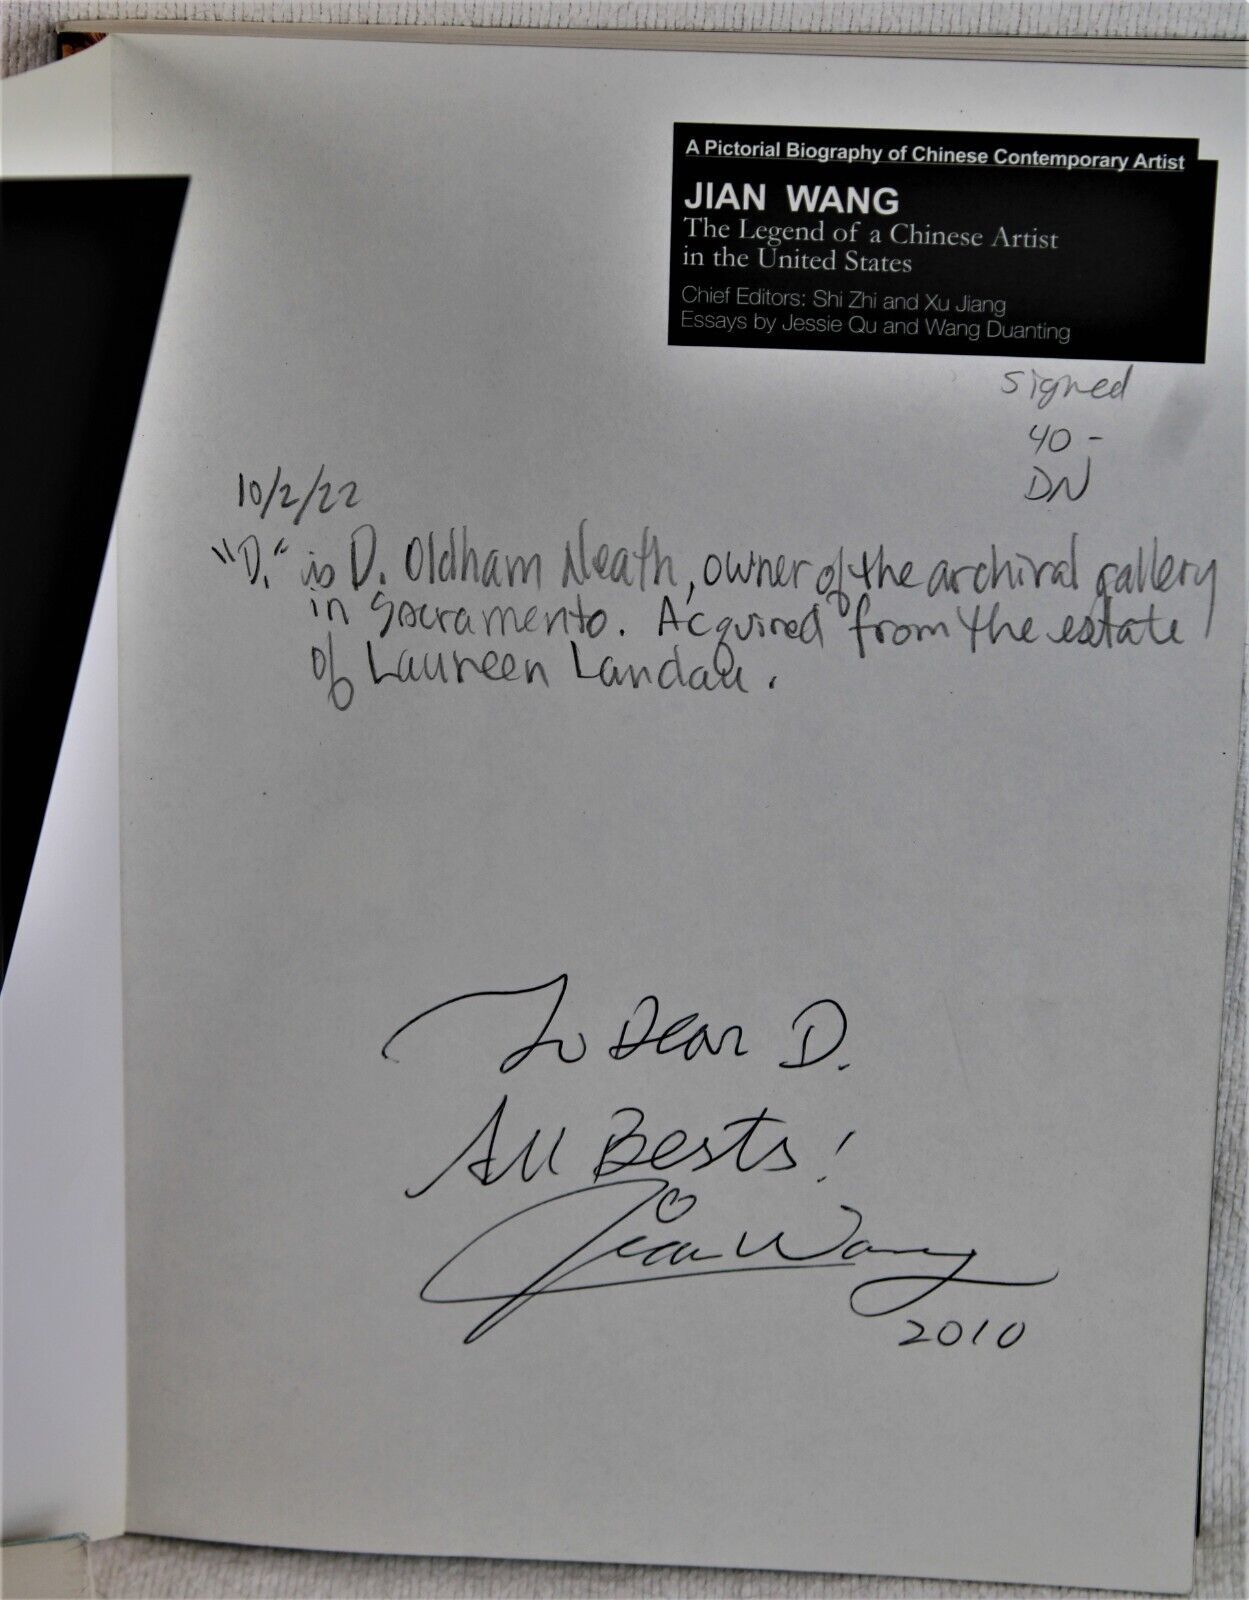 A Pictorial Biography of Chinese Contemporary Artist
JIAN WANG
The Legend of a Chinese Artist
in the United States
Chief Editors: Shi Zhi and Xu Jiang
Essays by Jessie Qu and Wang Duanting
signed
40 -
DN
10/2/22
"D." is D. Oldham Neath, owner of the archival gallery
in Sacramento. Acquired from the estate
of Laureen Landau.
To Dear D.
All Bests!
Jian Wang
2010